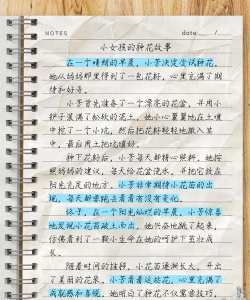 NOTES
date    /
小女孩的种花故事
在一个晴朗的早晨，小芳决定尝试种花。
她从妈妈那里得到了一包花籽，心里充满了期
待和好奇。
小芳首先准备了一个漂亮的花盆，并用小
铲子装满了松软的泥土。她小心翼翼地在土壤
中挖了一个小坑，然后把花籽轻轻地撒入其
中，最后用土把坑填好。
种下花籽后，小芳每天都精心照料。她按
照妈妈的建议，每天给花盆浇水，并把它放在
阳光充足的地方。小芳非常期待小花苗的出
现，每天都要跑去看看有没有变化。
终于，在一个阳光灿烂的早晨，小芳惊喜
地发现小花苗破土而出。她兴奋地跳了起来，
仿佛看到了一颗小生命在她的呵护下茁壮成
长。
随着时间的推移，小花苗逐渐长大，开出
了美丽的花朵。小芳看着这些花，心里充满了
成就感和喜悦。她明白了种花不仅需要技巧，